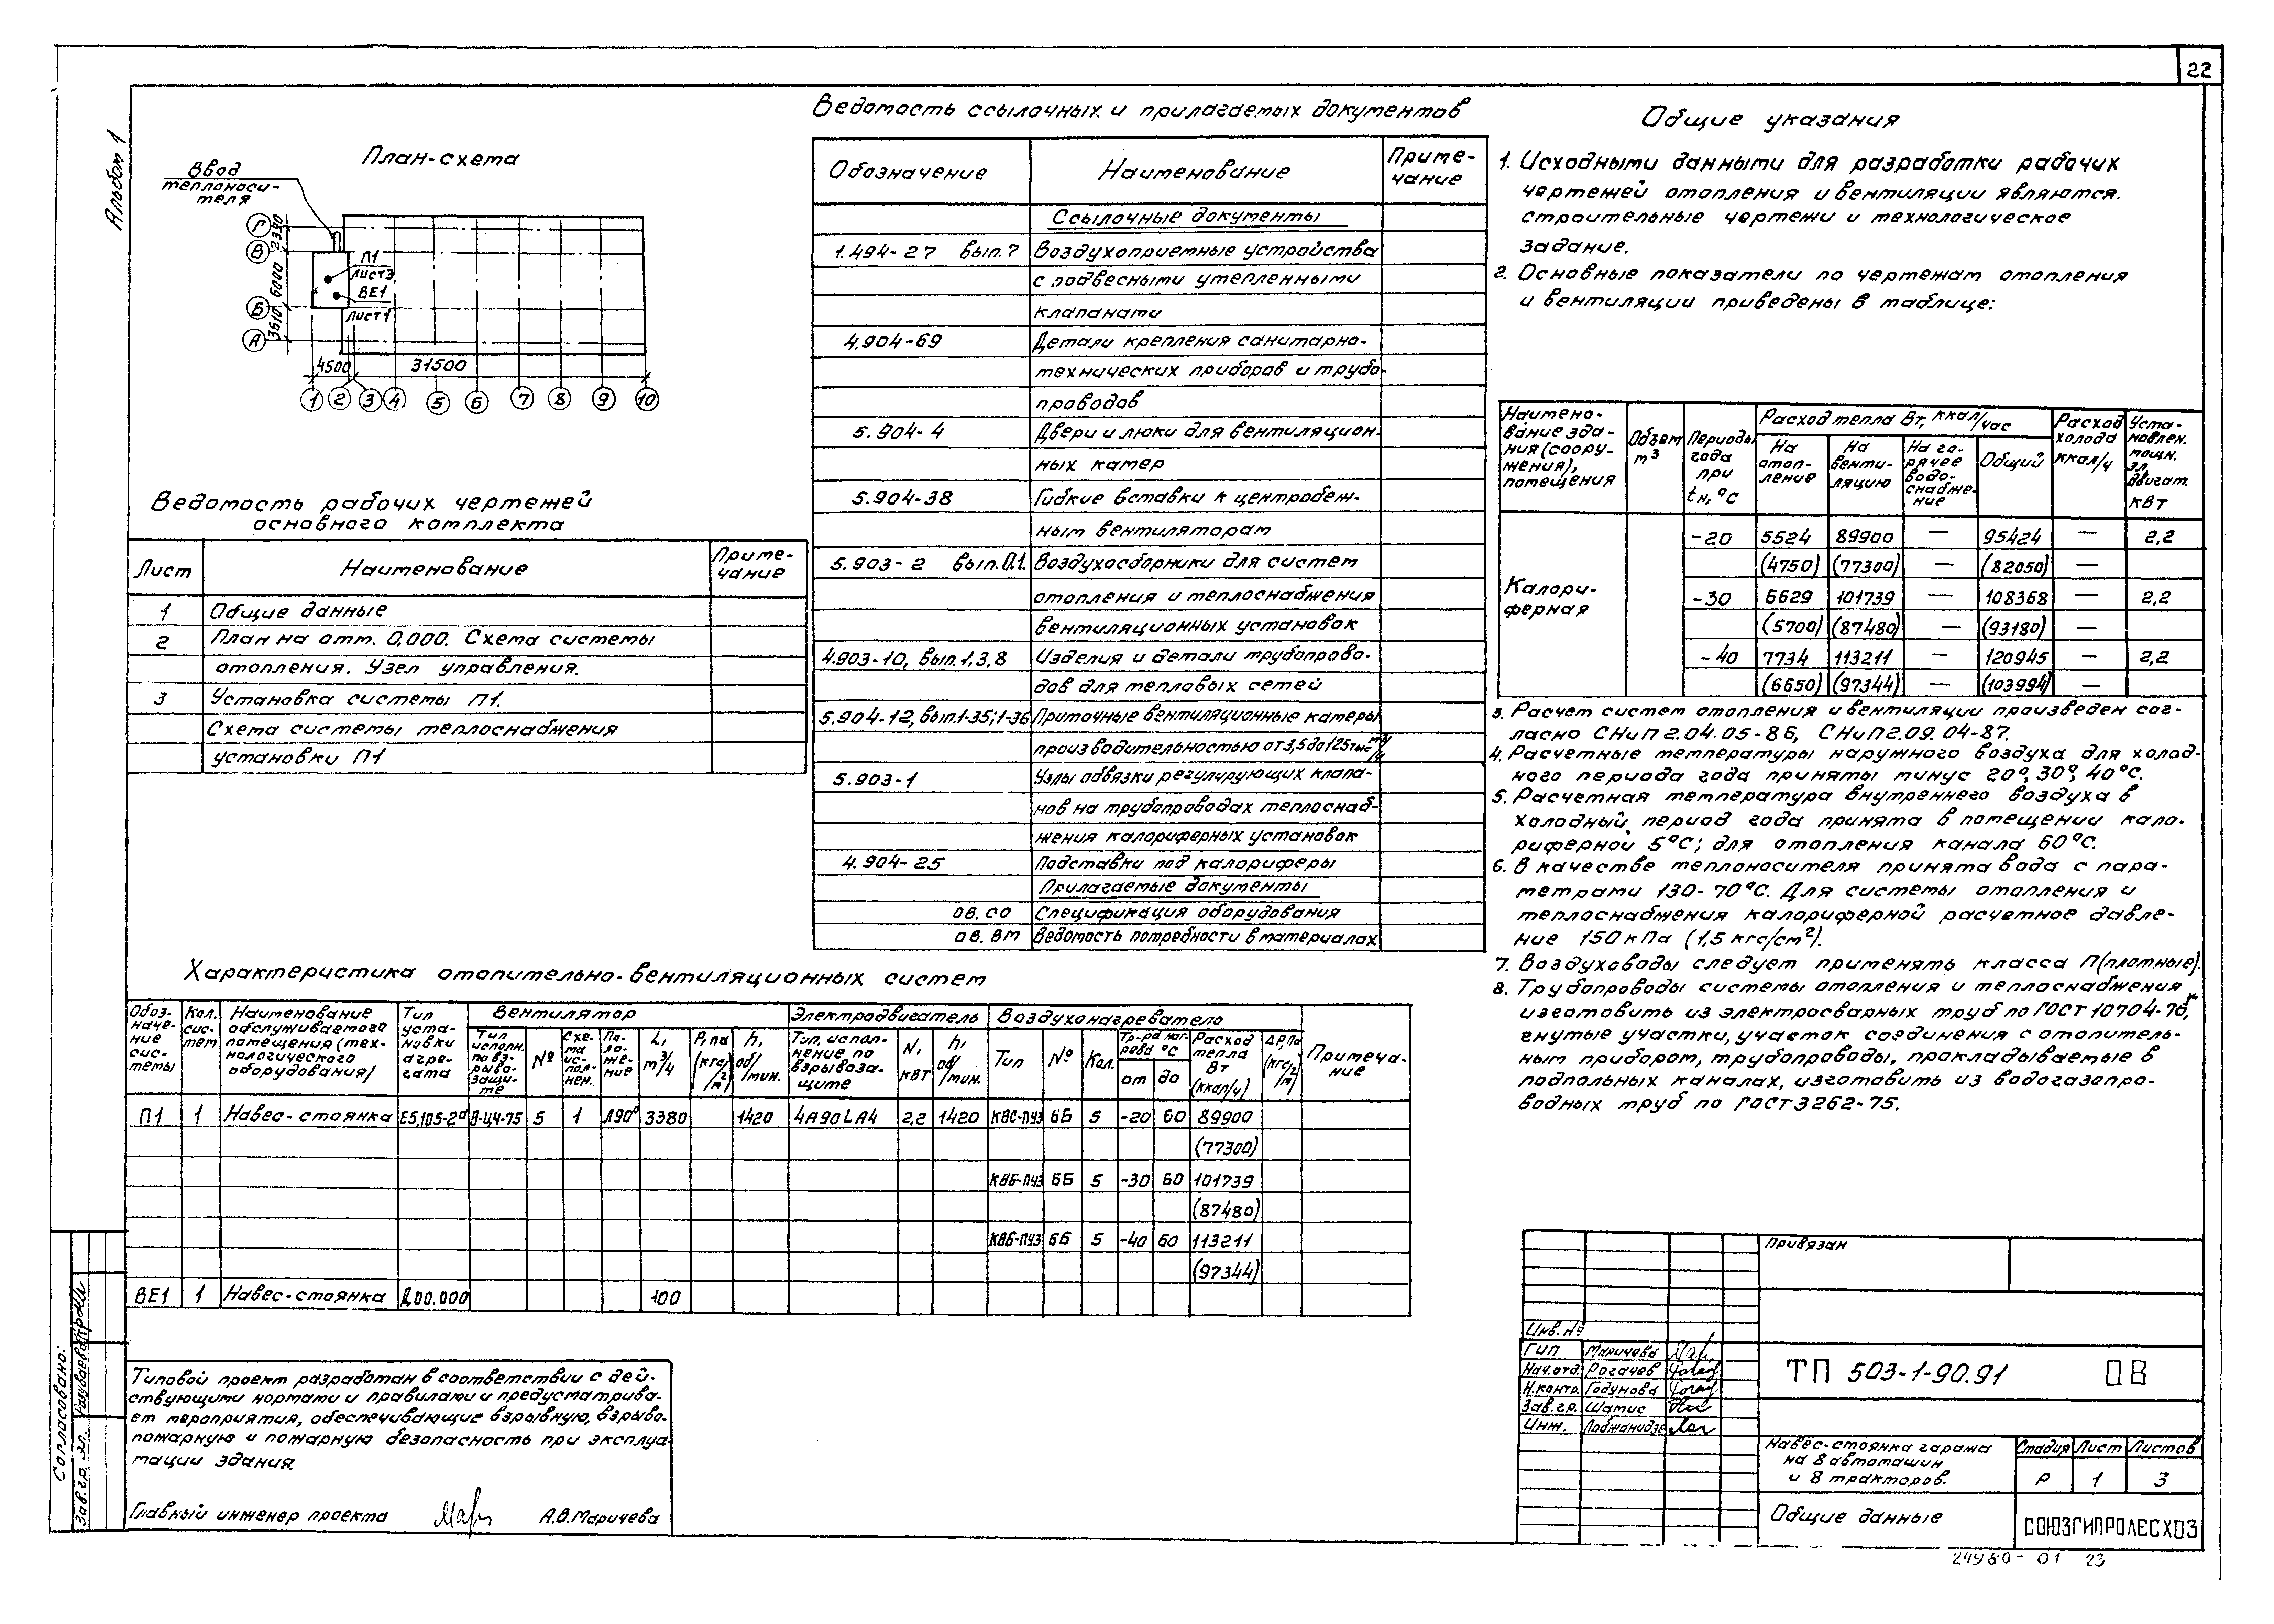 22
Альбом 1
План-схема
Ввод
теплоноси-
теля
Г
В
Б
А
2390
6000
3610
П1
Лист3
ВЕ1
Лист1
4500 31500
1 2 3 4 5 6 7 8 9 10
Ведомость рабочих чертежей
основного комплекта
Лист Наименование Приме-
чание
1 Общие данные
2 План на отм. 0.000. Схема системы
отопления. Узел управления.
3 Установка системы П1.
Схема системы теплоснабжения
установки П1
Ведомость ссылочных и прилагаемых документов
Обозначение Наименование Приме-
чание
Ссылочные документы
1.494-27 вып.7 Воздухоприемные устройства
с подвесными утепленными
клапанами
4.904-69 Детали крепления санитарно-
технических приборов и трубо-
проводов
5.904-4 Двери и люки для вентиляцион-
ных камер
5.904-38 Гибкие вставки к центробеж-
ным вентиляторам
5.903-2 вып.0.1. Воздухосборники для систем
отопления и теплоснабжения
вентиляционных установок
4.903-10, вып.1,3,8 Изделия и детали трубопрово-
дов для тепловых сетей
5.904-12, вып.1-35;1-36 Приточные вентиляционные камеры
производительностью от 3,5 до 125 тыс м3/ч
5.903-1 Узлы обвязки регулирующих клапа-
нов на трубопроводах теплоснаб-
жения калориферных установок
4.904-25 Подставки под калориферы
Прилагаемые документы
ОВ.СО Спецификация оборудования
ОВ.ВМ Ведомость потребности в материалах
Общие указания
1. Исходными данными для разработки рабочих
чертежей отопления и вентиляции являются.
строительные чертежи и технологическое
задание.
2. Основные показатели по чертежам отопления
и вентиляции приведены в таблице:
Наимено-
вание зда-
ния (соору-
жения),
помещения
Объем
м3
Периоды
года
при
tн, °С
Расход тепла Вт, ккал/час
На
отоп-
ление
На
венти-
ляцию
На го-
рячее
водо-
снабже-
ние
Общий
Расход
холода
ккал/ч
Уста-
новлен.
мощн.
эл.
двигат.
кВт
Калори-
ферная
-20 5524 89900 — 95424 — 2,2
(4750) (77300) — (82050) —
-30 6629 101739 — 108368 — 2,2
(5700) (87480) — (93180) —
-40 7734 113211 — 120945 — 2,2
(6650) (97344) — (103994) —
3. Расчет систем отопления и вентиляции произведен сог-
ласно СНиП 2.04.05-86, СНиП 2.09.04-87.
4. Расчетные температуры наружного воздуха для холод-
ного периода года приняты минус 20°, 30°, 40°С.
5. Расчетная температура внутреннего воздуха в
холодный период года принята в помещении кало-
риферной 5°С; для отопления канала 60°С.
6. В качестве теплоносителя принята вода с пара-
метрами 130-70°С. Для системы отопления и
теплоснабжения калориферной расчетное давле-
ние 150 кПа (1,5 кгс/см2).
7. Воздуховоды следует применять класса П (плотные).
8. Трубопроводы системы отопления и теплоснабжения
изготовить из электросварных труб по ГОСТ 10704-76*,
гнутые участки, участок соединения с отопитель-
ным прибором, трубопроводы, прокладываемые в
подпольных каналах, изготовить из водогазопро-
водных труб по ГОСТ 3262-75.
Характеристика отопительно-вентиляционных систем
Обоз-
наче-
ние
сис-
темы
Кол.
сис-
тем
Наименование
обслуживаемого
помещения (тех-
нологического
оборудования)
Тип
уста-
новки
агре-
гата
Вентилятор
Тип
исполн.
по вз-
рыво-
защи-
те
№
Схе-
ма
ис-
пол-
нен.
По-
ло-
же-
ние
L,
м3/ч
P, Па
(кгс/м2)
n,
об/
мин.
Электродвигатель
Тип, испол-
нение по
взрывоза-
щите
N,
кВт
n,
об/
мин.
Воздухонагреватель
Тип № Кол.
Тр-ра наг-
рева °С
от до
Расход
тепла
Вт
(ккал/ч)
ΔP, Па
(кгс/м2)
Примеча-
ние
П1 1 Навес-стоянка Е5,105-2а В-Ц4-75 5 1 Л90° 3380 1420 4А90LА4 2,2 1420 КВС-ПУЗ 6Б 5 -20 60 89900
(77300)
КВБ-ПУЗ 6Б 5 -30 60 101739
(87480)
КВБ-ПУЗ 6Б 5 -40 60 113211
(97344)
ВЕ1 1 Навес-стоянка Д00.000 100
Типовой проект разработан в соответствии с дей-
ствующими нормами и правилами и предусматрива-
ет мероприятия, обеспечивающие взрывную, взрыво-
пожарную и пожарную безопасность при эксплуа-
тации здания.
Главный инженер проекта А.В.Маричева
Согласовано:
Зав.гр. эл.
Привязан
Инв.№
ГИП Маричева
Нач.отд. Рогачев
Н.контр. Годунова
Зав.гр. Шамис
Инж. Лобжанидзе
ТП 503-1-90.91 ОВ
Навес-стоянка гаража
на 8 автомашин
и 8 тракторов.
Стадия Лист Листов
Р 1 3
Общие данные
СОЮЗГИПРОЛЕСХОЗ
24980-01 23